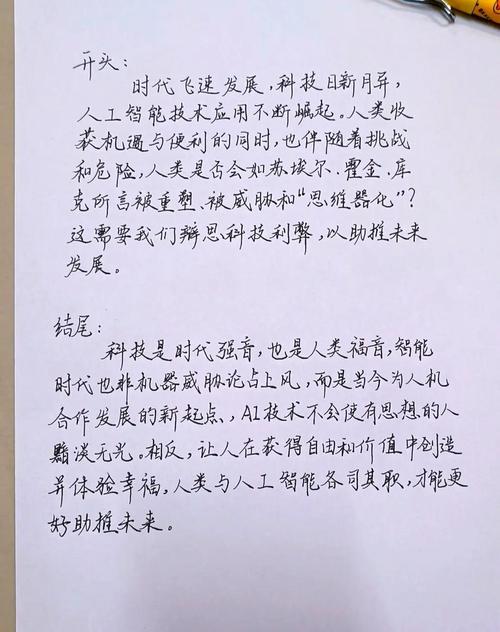 开头：
时代飞速发展，科技日新月屏，
人工智能技术应用不断崛起。人类收
获机遇与便利的同时，也伴随着挑战
和危险，人类是否会如苏埃尔、霍金、库
克所言被重塑、被威胁和“思维器化”？
这需要我们辩思科技利弊，以助推未来
发展。
结尾：
科技是时代强音，也是人类福音，智能
时代也非机器威胁论占上风，而是当今为人机
合作发展的新起点，AI技术不会使有思想的人
黯淡无光。相反，让人在获得自由和价值中创造
并体验幸福，人类与人工智能各司其职，才能更
好助推未来。